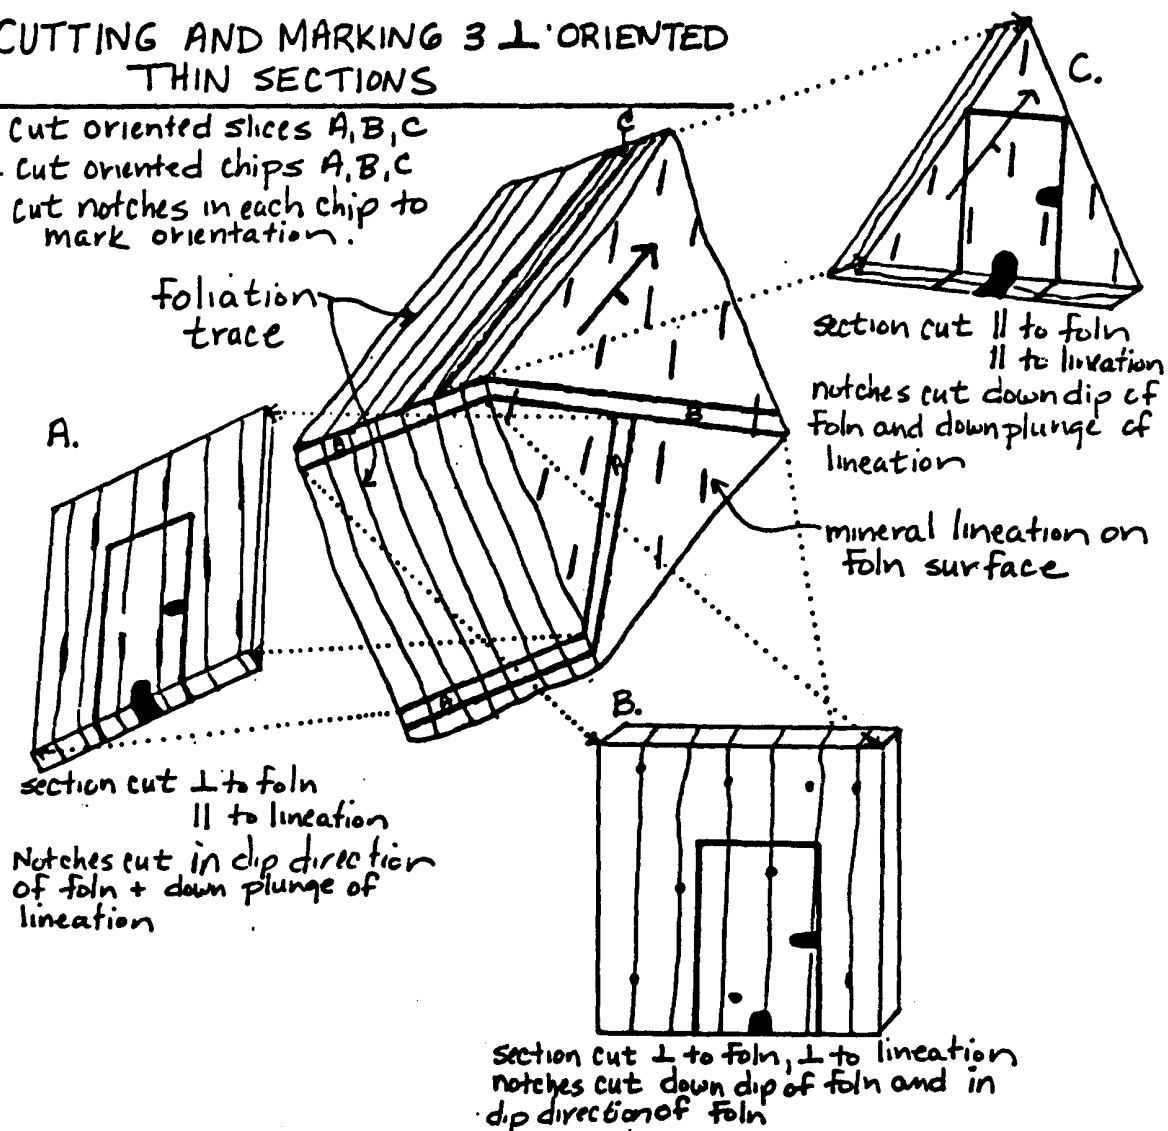 CUTTING AND MARKING 3 ⊥ ORIENTED
THIN SECTIONS
Cut oriented slices A, B, C
Cut oriented chips A, B, C
Cut notches in each chip to
mark orientation.
foliation
trace
C
C.
section cut || to foln
|| to lineation
notches cut down dip of
foln and down plunge of
lineation
A.
A
B
A
B
mineral lineation on
foln surface
section cut ⊥ to foln
|| to lineation
Notches cut in dip direction
of foln + down plunge of
lineation
B.
section cut ⊥ to foln, ⊥ to lineation
notches cut down dip of foln and in
dip direction of foln